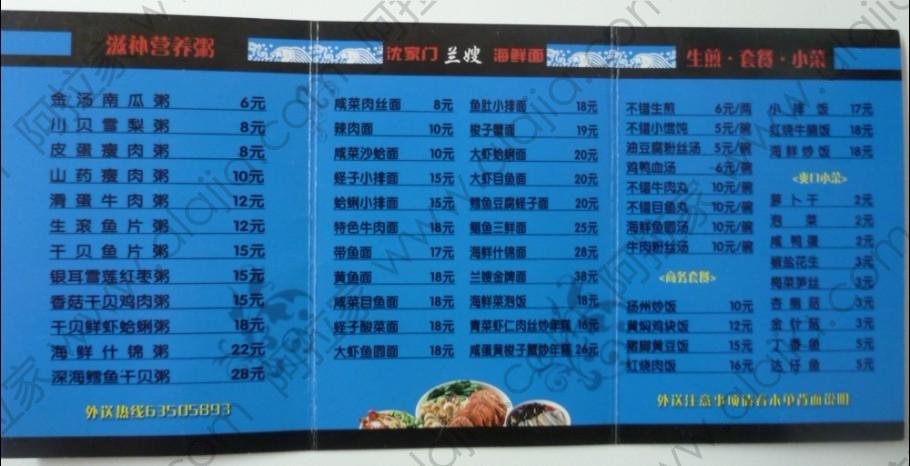 滋补营养粥
金汤南瓜粥 6元
川贝雪梨粥 8元
皮蛋瘦肉粥 8元
山药瘦肉粥 10元
滑蛋牛肉粥 12元
生滚鱼片粥 12元
干贝鱼片粥 15元
银耳雪莲红枣粥 15元
香菇干贝鸡肉粥 15元
干贝鲜虾蛤蜊粥 18元
海鲜什锦粥 22元
深海鳕鱼干贝粥 28元
外送热线63505893
沈家门 兰嫂 海鲜面
咸菜肉丝面 8元
辣肉面 10元
咸菜沙蛤面 10元
蛏子小排面 15元
蛤蜊小排面 15元
特色牛肉面 18元
带鱼面 17元
黄鱼面 18元
咸菜目鱼面 18元
蛏子酸菜面 18元
大虾鱼圆面 18元
鱼肚小排面 18元
梭子蟹面 19元
大虾蛤蜊面 20元
大虾目鱼面 20元
鳕鱼豆腐蛏子面 20元
鲳鱼三鲜面 25元
海鲜什锦面 28元
兰嫂金牌面 38元
海鲜菜泡饭 18元
青菜虾仁肉丝炒年糕 16元
咸蛋黄梭子蟹炒年糕 26元
生煎·套餐·小菜
不错生煎 6元/两
不错小馄饨 5元/碗
油豆腐粉丝汤 5元/碗
鸡鸭血汤 6元/碗
不错牛肉丸 10元/碗
不错目鱼丸 10元/碗
海鲜鱼圆汤 10元/碗
牛肉粉丝汤 10元/碗
<商务套餐>
扬州炒饭 10元
黄焖鸡块饭 12元
猪脚黄豆饭 15元
红烧肉饭 16元
小排饭 17元
红烧牛腩饭 18元
海鲜炒饭 18元
<爽口小菜>
萝卜干 2元
泡菜 2元
咸鸭蛋 2元
椒盐花生 3元
梅菜笋丝 3元
杏鲍菇 3元
金针菇 3元
丁香鱼 5元
达仔鱼 5元
外送注意事项请看本单背面说明
阿拉家 www.alajia.com